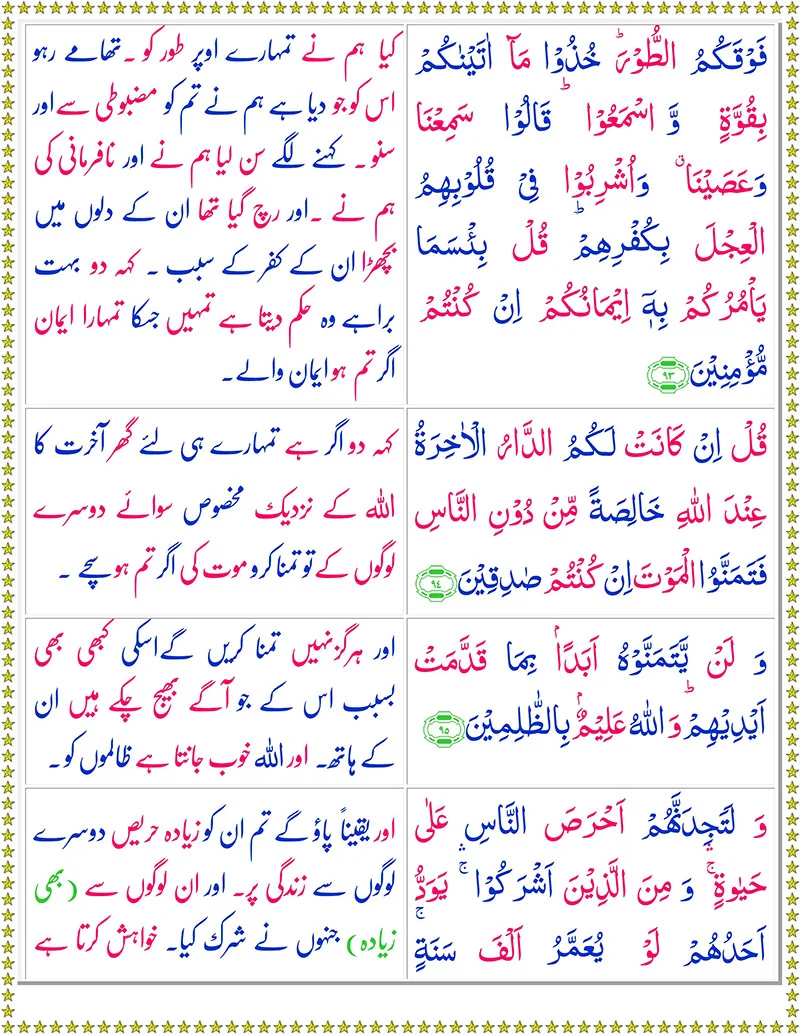 فَوۡقَكُمُ الطُّوۡرَؕ خُذُوۡا مَآ اٰتَيۡنٰكُمۡ
بِقُوَّةٍ وَّ اسۡمَعُوۡا ؕ قَالُوۡا سَمِعۡنَا
وَعَصَيۡنَا ۙ وَاُشۡرِبُوۡا فِىۡ قُلُوۡبِهِمُ
الۡعِجۡلَ بِکُفۡرِهِمۡ ؕ قُلۡ بِئۡسَمَا
يَاۡمُرُکُمۡ بِهٖٓ اِيۡمَانُكُمۡ اِنۡ كُنۡتُمۡ
مُّؤۡمِنِيۡنَ ٩٣
کیا ہم نے تمہارے اوپر طور کو ۔تھامے رہو
اس کو جو دیا ہے ہم نے تم کو مضبوطی سے اور
سنو ۔ کہنے لگے سن لیا ہم نے اور نافرمانی کی
ہم نے ۔اور رچ گیا تھا ان کے دلوں میں
بچھڑا ان کے کفر کے سبب ۔ کہہ دو بہت
براہے وہ حکم دیتا ہے تمہیں جسکا تمہارا ایمان
اگر تم ہو ایمان والے۔
قُلۡ اِنۡ كَانَتۡ لَـکُمُ الدَّارُ الۡاٰخِرَةُ
عِنۡدَ اللّٰهِ خَالِصَةً مِّنۡ دُوۡنِ النَّاسِ
فَتَمَنَّوُا الۡمَوۡتَ اِنۡ کُنۡتُمۡ صٰدِقِيۡنَ ٩٤
کہہ دو اگر ہے تمہارے ہی لئے گھر آخرت کا
اللہ کے نزدیک مخصوص سوائے دوسرے
لوگوں کے تو تمنا کرو موت کی اگر تم ہو سچے ۔
وَ لَنۡ يَّتَمَنَّوۡهُ اَبَدًاۢ بِمَا قَدَّمَتۡ
اَيۡدِيۡهِمۡؕ وَاللّٰهُ عَلِيۡمٌۢ بِالظّٰلِمِيۡنَ ٩٥
اور ہرگزنہیں تمنا کریں گے اسکی کبھی بھی
بسبب اس کے جو آگے بھیج چکے ہیں ان
کے ہاتھ۔ اور اللہ خوب جانتا ہے ظالموں کو ۔
وَ لَتَجِدَنَّهُمۡ اَحۡرَصَ النَّاسِ عَلٰى
حَيٰوةٍ ۛۚ وَ مِنَ الَّذِيۡنَ اَشۡرَكُوۡا ۛۚ يَوَدُّ
اَحَدُهُمۡ لَوۡ يُعَمَّرُ اَلۡفَ سَنَةٍ ۚ
اور یقیناً پاؤ گے تم ان کو زیادہ حریص دوسرے
لوگوں سے زندگی پر۔ اور ان لوگوں سے (بھی
زیادہ) جنہوں نے شرک کیا۔ خواہش کرتا ہے